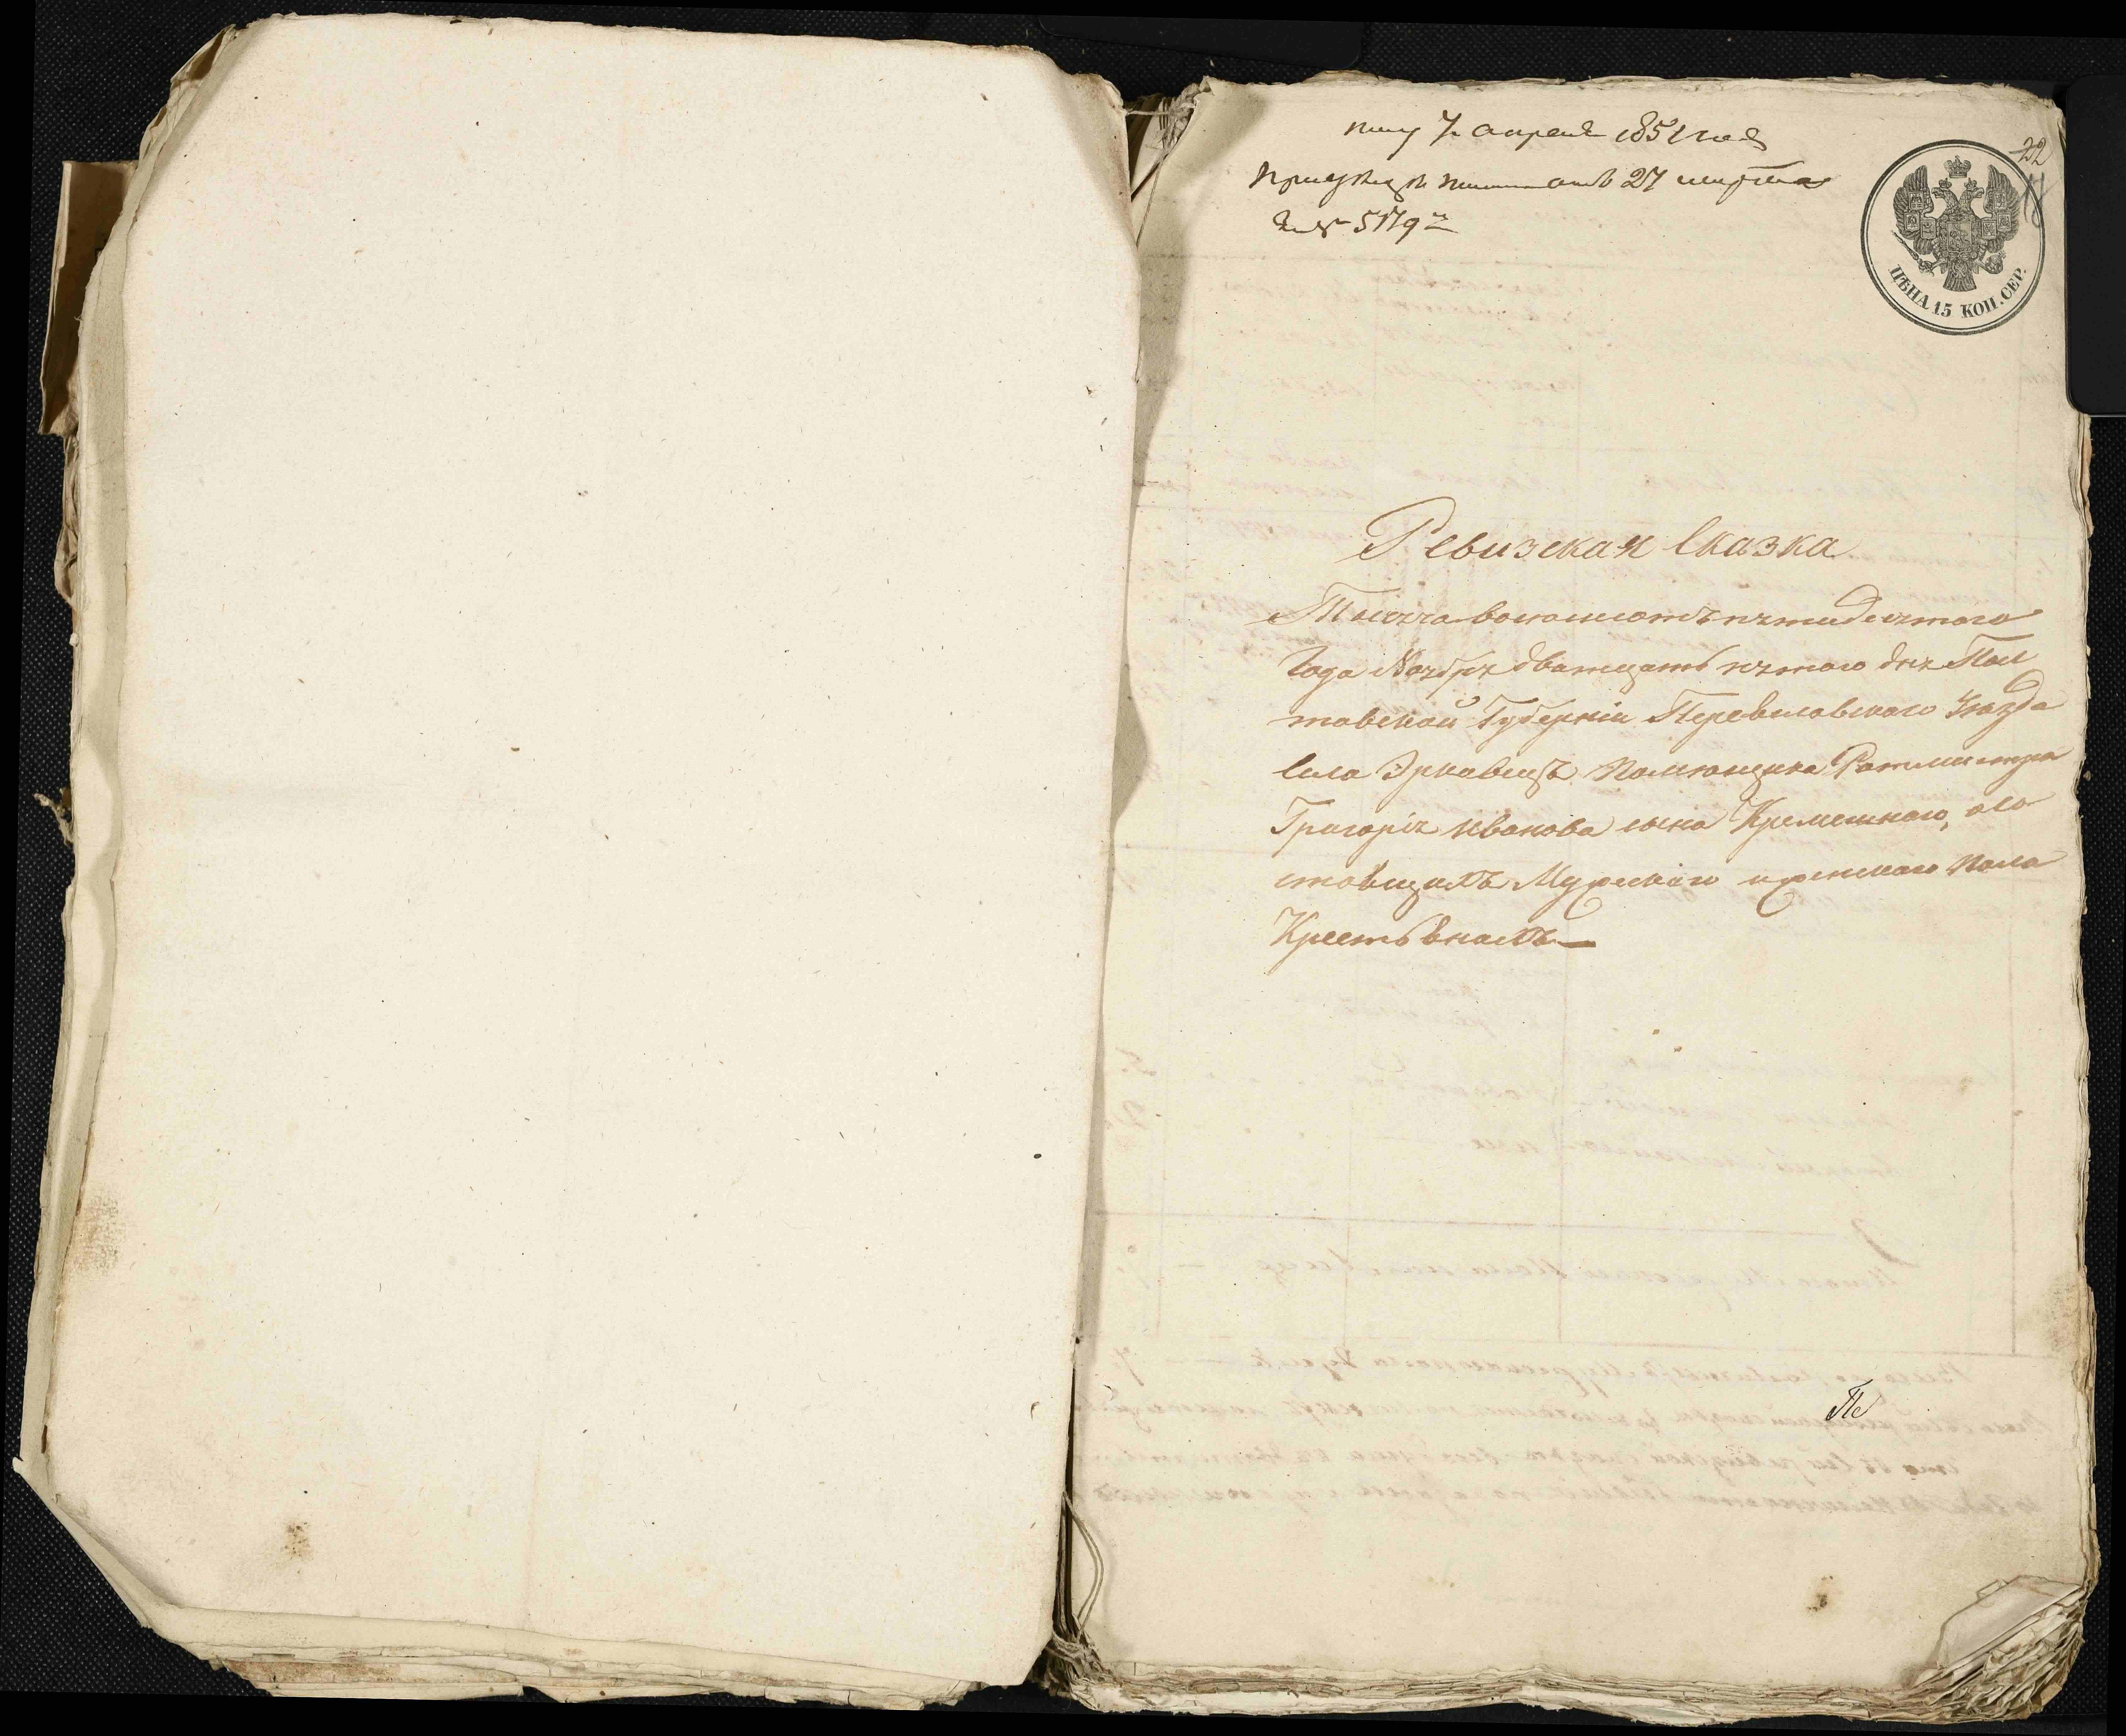 7 апреля 1851 года
27 марта
№ 5179
22
ЦѢНА 15 КОП. СЕР.
Ревизская Сказка
Тысяча восемьсотъ пятидесятого
Года Ноября дватцать пятого дня Пол
тавской Губерніи Переяславского Уѣзда
Села Эрковецъ Помѣщика Ротмистра
Григорія Иванова сына Кремешного, о со
стоящихъ Мужеского и женского пола
Крестьянахъ